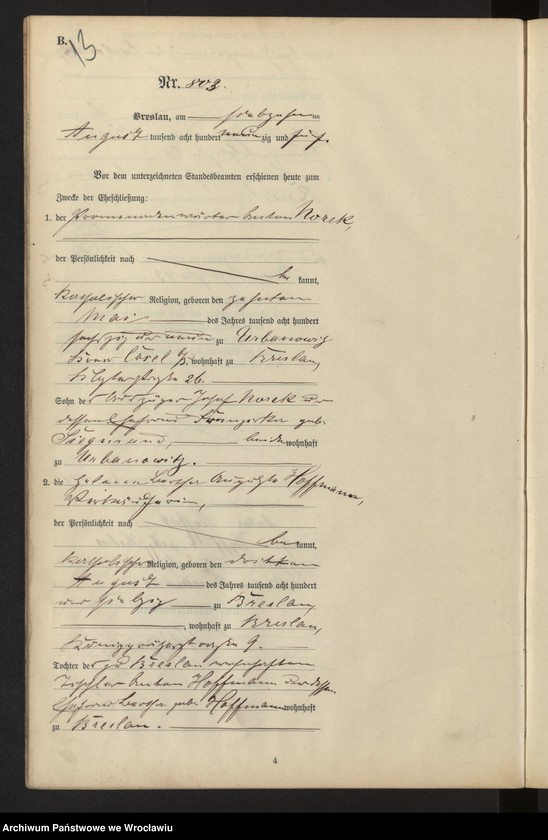 B.
13
Nr. 803.
Breslau, am siebzehnten
August tausend acht hundert neunzig und fünf.
Vor dem unterzeichneten Standesbeamten erschienen heute zum
Zwecke der Eheschließung:
1. der Promenadenwärter Anton Norek,
der Persönlichkeit nach
bekannt,
katholischer Religion, geboren den zehnten
Mai des Jahres tausend acht hundert
sechszig und neun zu Urbanowitz
Kreis Cosel O/S, wohnhaft zu Breslau,
26.
Sohn des Auszügers Josef Norek und
dessen Ehefrau Franziska geb.
beide wohnhaft
zu Urbanowitz.
2. die Helene Bertha Auguste Hoffmann,
Verkäuferin,
der Persönlichkeit nach
bekannt,
katholischer Religion, geboren den dritten
August des Jahres tausend acht hundert
und siebzig zu Breslau,
, wohnhaft zu Breslau,
9.
Tochter des zu Breslau wohnhaften
Tischlers Anton Hoffmann und dessen
Ehefrau Bertha geb. Hoffmann wohnhaft
zu Breslau.
4
Archiwum Państwowe we Wrocławiu